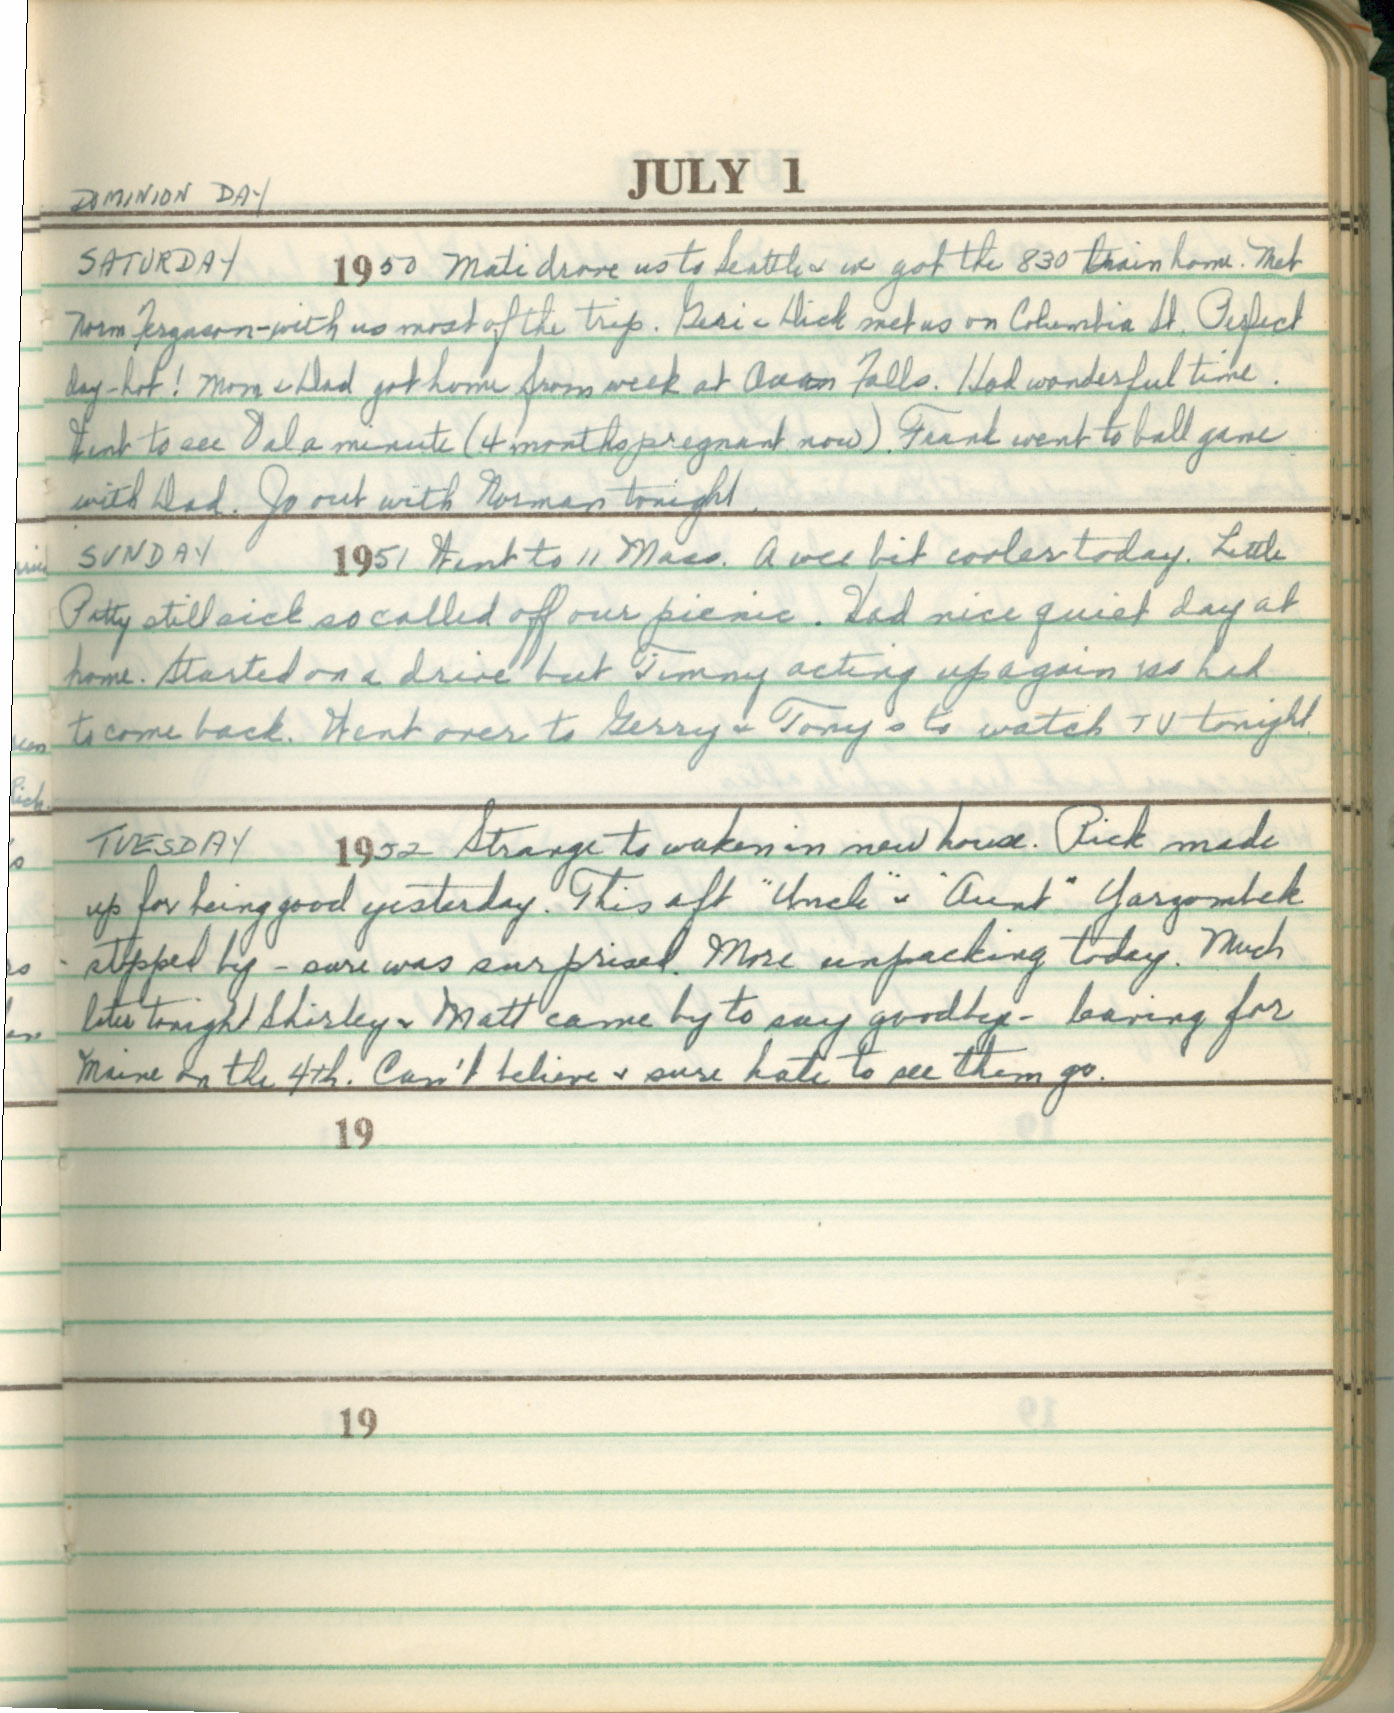 JULY 1
DOMINION DAY
SATURDAY 1950 Mati drove us to Seattle & we got the 830 train home. Met
Norm Ferguson-with us most of the trip. Geri & Dick met us on Columbia St. Perfect
day-hot! Mom & Dad got home from week at Ocean Falls. Had wonderful time.
Went to see Val a minute (4 months pregnant now). Frank went to ball game
with Dad. Jo out with Norman tonight.
SUNDAY 1951 Went to 11 Mass. A wee bit cooler today. Little
Patty still sick so called off our picnic. Had nice quiet day at
home. Started on a drive but Timmy acting up again so had
to come back. Went over to Gerry & Tony's to watch TV tonight.
TUESDAY 1952 Strange to waken in new house. Rick made
up for being good yesterday. This aft "Uncle" & "Aunt" Yargombek
stopped by - sure was surprised. More unpacking today. Much
later tonight Shirley & Matt came by to say goodbye - leaving for
Maine on the 4th. Can't believe & sure hate to see them go.
19
19